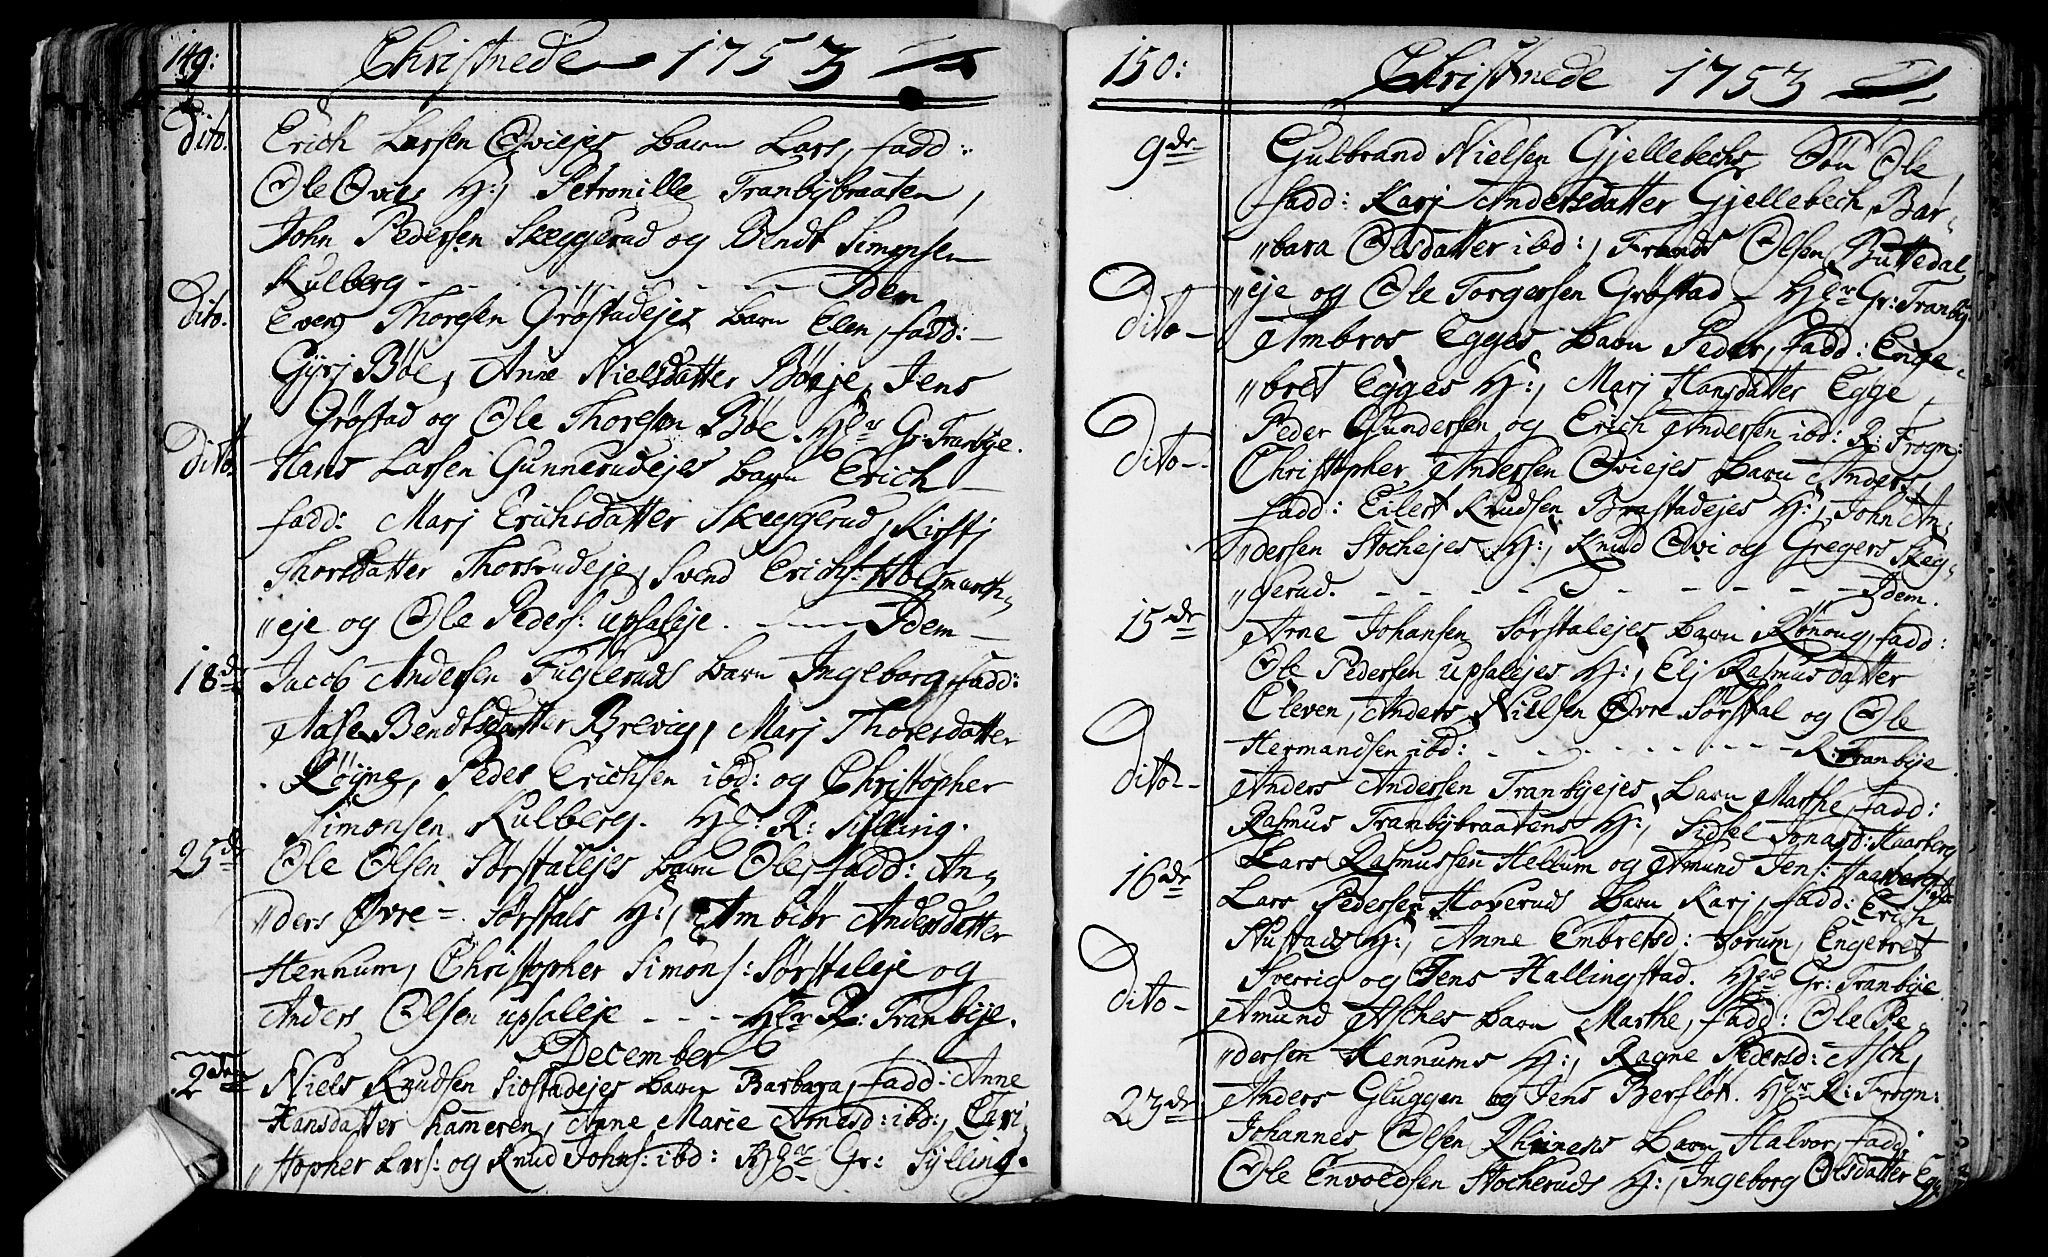 149: Christnede 1753
Dito. Erich Larsen Oviejes barn Lars, fadd:
Ole Ovies H:, Petronille Tranbybraaten,
John Pedersen Skeggerud og Bendt Simonsen
Kulberg - - - - - Idem
Dito. Even Thoresen Grøstadejes barn Elen, fadd:
Gyrj Bøe, Anne Nielsdatter Bøeje, Jens
Grøstad og Ole Thoresen Bøe. Hlr Gr: Tranbye.
Dito. Hans Larsen Gunnerudejes barn Erich
fadd: Marj Erichsdatter Skeggerud, Kirstj
Thorsdatter Thorsrudeje, Svend Erichs: Holmarch-
"eje og Ole Peders: Upsaleje. - - Idem
18de Jacob Andersen Fugleruds barn Ingeborg, fadd:
Aase Bendtsdatter Brevig, Marj Thoresdatter
Røgne, Peder Erichsen ibd: og Christopher
Simonsen Kulberg. Hl: R: Sylling.
25de Ole Olsen Sørstalejes barn Ole, fadd: An-
"ders Øvre- Sørstals H:, Ambiør Andersdatter
Hennum, Christopher Simons: Sørstaleje og
Anders Olsen Upsaleje - - - Hlr R: Tranbye.
December
2den Niels Knudsen Siøstadejes barn Barbara, fadd: Anne
Hansdatter Hameren, Anne Marie Arnesd: ibd:, Cri-
"stopher Lars: og Knud Johns: ibd: Hlr Gr: Sylling.
150: Christnede 1753
9de Gulbrand Nielsen Gjellebechs Søn Ole,
fadd: Karj Andersdatter Gjellebech, Bar-
"bara Olsdatter ibd:, Frands Olsen Buttedal-
"eje og Ole Torgersen Grøstad - Hlr Gr: Tranby.
Dito - Ambros Egges barn Peder, fadd: Enge-
"bret Egges H:, Marj Hansdatter Egge
Peder Gundersen og Erich Andersen ibd: R: Frogn:
Dito - Christopher Andersen Oviejes barn Anders,
fadd: Eilert Knudsen Brastadejes H:, John An-
"dersen Stochejes H:, Knud Ovi og Gregers Skeg-
"gerud. - - - - - - Idem.
15de Arne Johansen Sørstalejes barn Rønoug, fadd:
Ole Pedersen Upsalejes H:, Elj Rasmusdatter
Cleven, Anders Nielsen Øvre Sørstal og Ole
Hermandsen ibd: - - - - - R: Tranbye.
Dito - Anders Andersen Tranbyejes barn Marthe, fadd:
Rasmus Tranbybraatens H:, Sidsel Haarberg
Lars Rasmussen Hellum og Amund Jens: Haarberg
16de Lars Pedersen Hoveruds barn Karj, fadd: Erich
Stustads H:, Anne Embretsd: Horum, Engebret
Sverrig og Jens Hallingstad. Hlr Gr: Tranbye
Dito - Amund Asches barn Marthe, fadd: Ole Pe-
"dersen Hennums H:, Ragne Pedersd: Asch,
Anders Gluggen og Jens Berfløt. Hlr R: Frogn:
23de Johannes Olsen barn Halvor, fadd:
Ole Envoldsen Stocheruds H:, Ingeborg Olsdatter